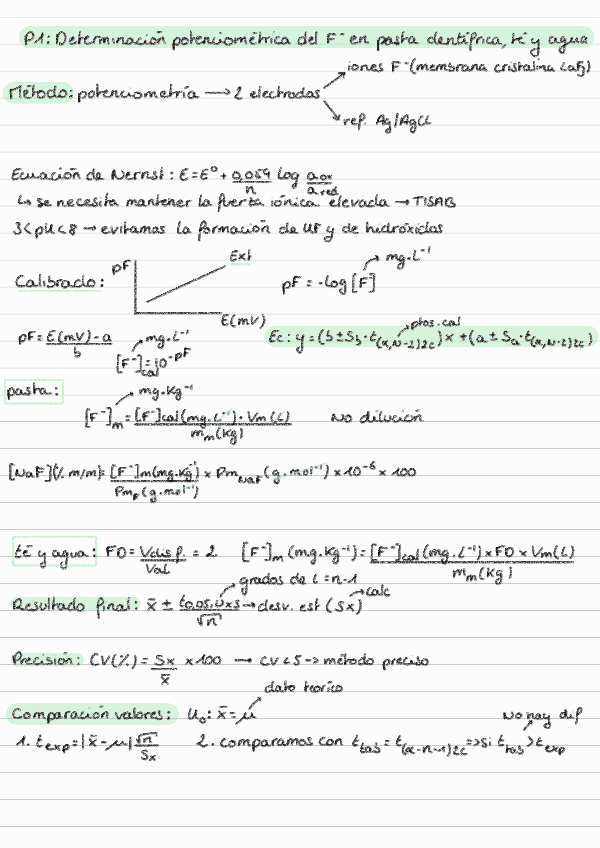 P1: Determinación potenciométrica del F⁻ en pasta dentífrica, té y agua
iones F⁻ (membrana cristalina LaF₃)
Método: potenciometría → 2 electrodos
ref. Ag/AgCl
Ecuación de Nernst: E = E⁰ + 0,059/n log a ox/a red
↳ se necesita mantener la fuerza iónica elevada → TISAB
3 < pH < 8 → evitamos la formación de HF y de hidróxidos
Calibrado: pF Ext E(mV) pF = -log [F⁻] mg·L⁻¹
pF = E(mV) - a / b
[F⁻]cal = 10^-pF mg·L⁻¹
Ec: y = (b ± S_b · t(α, N-2) 2c) x + (a ± S_a · t(α, N-2) 2c) ptos. cal
pasta:
mg·Kg⁻¹
[F⁻]m = [F⁻]cal (mg·L⁻¹) · Vm (L) / mm (Kg) No dilución
[NaF] (% m/m) = [F⁻]m (mg·Kg⁻¹) / Pm_F (g·mol⁻¹) x Pm_NaF (g·mol⁻¹) x 10⁻⁶ x 100
té y agua: FD = Vdisf. / Val = 2 [F⁻]m (mg·Kg⁻¹) = [F⁻]cal (mg·L⁻¹) x FD x Vm (L) / mm (Kg)
grados de L = n-1
Resultado final: x̄ ± t0,05,υ x s / √n → desv. est (Sx) calc
Precisión: CV(%) = Sx / x̄ x 100 → CV < 5 → método preciso
dato teorico
Comparación valores: H₀: x̄ = μ
1. t exp = |x̄ - μ| √n / Sx 2. comparamos con t tab = t(α - n - 1) 2c => si t tab > t exp No hay dif